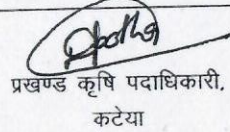 प्रखण्ड कृषि पदाधिकारी,
कटेया